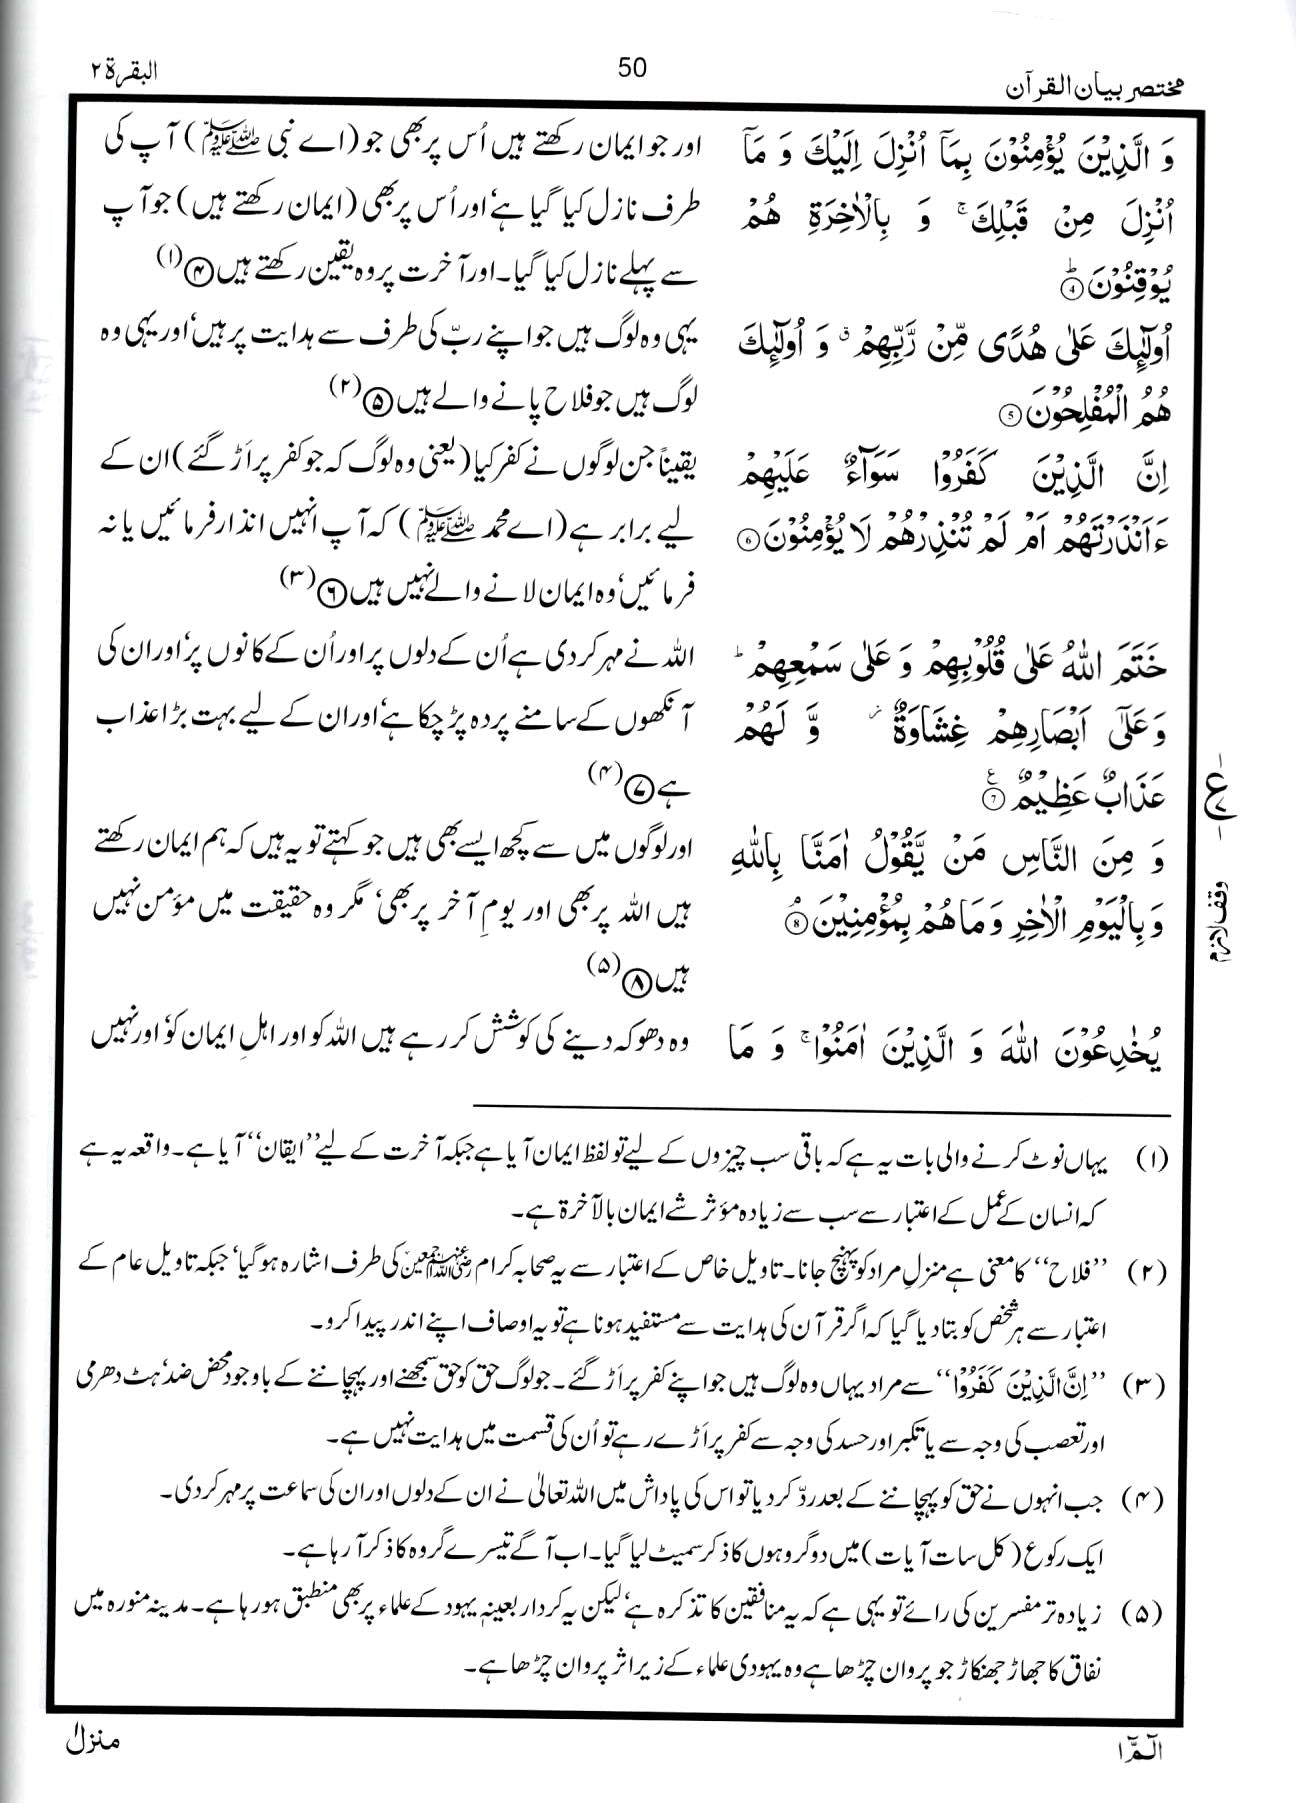 مختصر بیان القرآن
50
البقرۃ ۲
وَ الَّذِیْنَ یُؤْمِنُوْنَ بِمَاۤ اُنْزِلَ اِلَیْكَ وَ مَاۤ
اُنْزِلَ مِنْ قَبْلِكَ ۚ وَ بِالْاٰخِرَةِ هُمْ
یُوْقِنُوْنَ ؕ۴
اُولٰٓىِٕكَ عَلٰى هُدًى مِّنْ رَّبِّهِمْ ۗ وَ اُولٰٓىِٕكَ
هُمُ الْمُفْلِحُوْنَ ۵
اِنَّ الَّذِیْنَ كَفَرُوْا سَوَآءٌ عَلَیْهِمْ
ءَاَنْذَرْتَهُمْ اَمْ لَمْ تُنْذِرْهُمْ لَا یُؤْمِنُوْنَ ۶
خَتَمَ اللّٰهُ عَلٰى قُلُوْبِهِمْ وَ عَلٰى سَمْعِهِمْ ؕ
وَ عَلٰۤى اَبْصَارِهِمْ غِشَاوَةٌ ؗ وَّ لَهُمْ
عَذَابٌ عَظِیْمٌ ۷ ع
وَ مِنَ النَّاسِ مَنْ یَّقُوْلُ اٰمَنَّا بِاللّٰهِ
وَ بِالْیَوْمِ الْاٰخِرِ وَ مَا هُمْ بِمُؤْمِنِیْنَ ۘ۸
یُخٰدِعُوْنَ اللّٰهَ وَ الَّذِیْنَ اٰمَنُوْا ۚ وَ مَا
اور جو ایمان رکھتے ہیں اُس پر بھی جو (اے نبی ﷺ) آپ کی
طرف نازل کیا گیا ہے‘ اور اُس پر بھی (ایمان رکھتے ہیں) جو آپ
سے پہلے نازل کیا گیا۔ اور آخرت پر وہ یقین رکھتے ہیں ۴ (۱)
یہی وہ لوگ ہیں جو اپنے ربّ کی طرف سے ہدایت پر ہیں‘ اور یہی وہ
لوگ ہیں جو فلاح پانے والے ہیں ۵ (۲)
یقیناً جن لوگوں نے کفر کیا (یعنی وہ لوگ کہ جو کفر پر اَڑ گئے) ان کے
لیے برابر ہے (اے محمد ﷺ) کہ آپ انہیں انذار فرمائیں یا نہ
فرمائیں‘ وہ ایمان لانے والے نہیں ہیں ۶ (۳)
اللہ نے مہر کر دی ہے اُن کے دلوں پر اور اُن کے کانوں پر‘ اور ان کی
آنکھوں کے سامنے پردہ پڑ چکا ہے‘ اور ان کے لیے بہت بڑا عذاب
ہے ۷ (۴)
اور لوگوں میں سے کچھ ایسے بھی ہیں جو کہتے تو یہ ہیں کہ ہم ایمان رکھتے
ہیں اللہ پر بھی اور یومِ آخر پر بھی‘ مگر وہ حقیقت میں مؤمن نہیں
ہیں ۸ (۵)
وہ دھوکہ دینے کی کوشش کر رہے ہیں اللہ کو اور اہلِ ایمان کو‘ اور نہیں
ع
۷
وقف لازم
(۱) یہاں نوٹ کرنے والی بات یہ ہے کہ باقی سب چیزوں کے لیے تو لفظ ایمان آیا ہے جبکہ آخرت کے لیے ’’ایقان‘‘ آیا ہے۔ واقعہ یہ ہے
کہ انسان کے عمل کے اعتبار سے سب سے زیادہ مؤثر شے ایمان بالآخرۃ ہے۔
(۲) ’’فلاح‘‘ کا معنی ہے منزلِ مراد کو پہنچ جانا۔ تاویل خاص کے اعتبار سے یہ صحابہ کرام رضی اللہ عنہم اجمعین کی طرف اشارہ ہو گیا‘ جبکہ تاویل عام کے
اعتبار سے ہر شخص کو بتا دیا گیا کہ اگر قرآن کی ہدایت سے مستفید ہونا ہے تو یہ اوصاف اپنے اندر پیدا کرو۔
(۳) ’’اِنَّ الَّذِیْنَ كَفَرُوْا‘‘ سے مراد یہاں وہ لوگ ہیں جو اپنے کفر پر اَڑ گئے۔ جو لوگ حق کو حق سمجھنے اور پہچاننے کے باوجود محض ضد‘ ہٹ دھرمی
اور تعصب کی وجہ سے یا تکبر اور حسد کی وجہ سے کفر پر اَڑے رہے تو اُن کی قسمت میں ہدایت نہیں ہے۔
(۴) جب انہوں نے حق کو پہچاننے کے بعد ردّ کر دیا تو اس کی پاداش میں اللہ تعالیٰ نے ان کے دلوں اور ان کی سماعت پر مہر کر دی۔
ایک رکوع (کل سات آیات) میں دو گروہوں کا ذکر سمیٹ لیا گیا۔ اب آگے تیسرے گروہ کا ذکر آ رہا ہے۔
(۵) زیادہ تر مفسرین کی رائے تو یہی ہے کہ یہ منافقین کا تذکرہ ہے‘ لیکن یہ کردار بعینہٖ یہود کے علماء پر بھی منطبق ہو رہا ہے۔ مدینہ منورہ میں
نفاق کا جھاڑ جھنکاڑ جو پروان چڑھا ہے وہ یہودی علماء کے زیر اثر پروان چڑھا ہے۔
الٓمّٓ ۱
منزل ۱